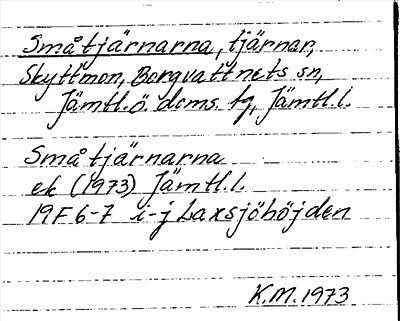 Småtjärnarna, tjärnar,
Skyttmon, Borgvattnets sn,
Jämtl.ö. doms. tg, Jämtl.l.
Småtjärnarna
ek (1973) Jämtl.l.
19F 6-7 i-j Laxsjöhöjden
K.M. 1973